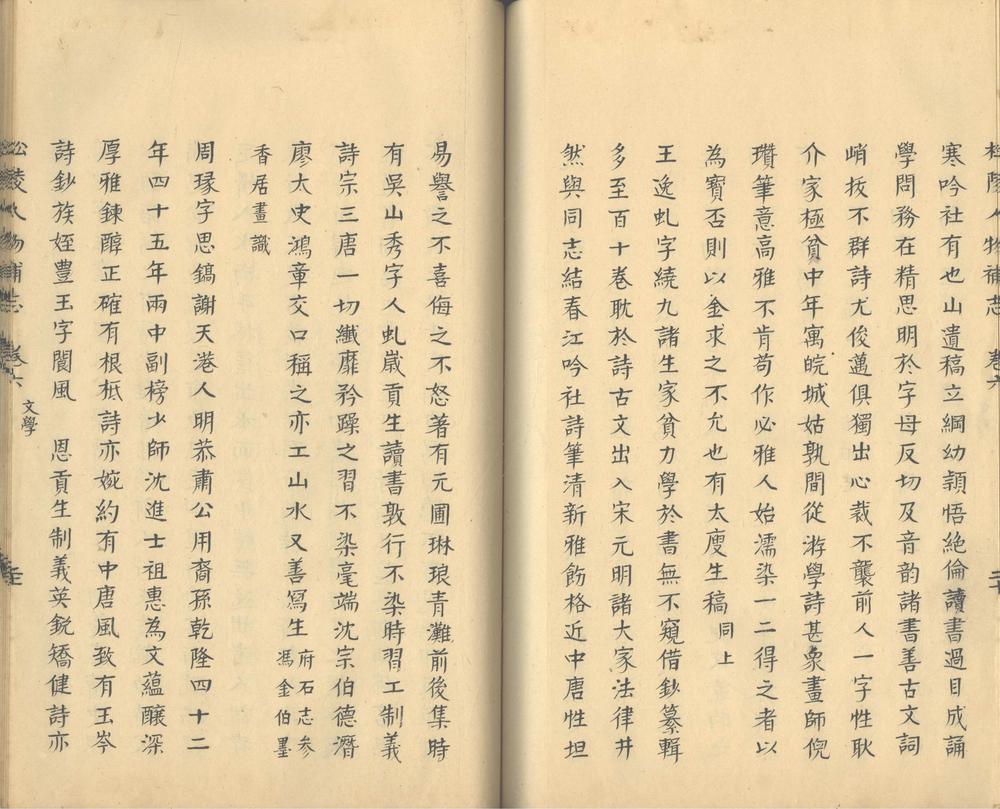 寒吟社有也山遺稿立綱幼穎悟絶倫讀書過目成誦
學問務在精思明於字母反切及音韵諸書善古文詞
峭拔不群詩尤俊邁俱獨出心裁不襲前人一字性耿
介家極貧中年寓皖城姑孰間從游學詩甚衆畫師倪
瓚筆意高雅不肯苟作必雅人始濡染一二得之者以
為寶否則以金求之不允也有太䖍生稿同上
王逸虬字繞九諸生家貧力學於書無不窺借鈔纂輯
多至百十卷耽於詩古文出入宋元明諸大家法律井
然與同志結春江吟社詩筆清新雅飭格近中唐性坦
易譽之不喜侮之不怒著有元圃琳琅青灘前後集時
有吳山秀字人虬歲貢生讀書敦行不染時習工制義
詩宗三唐一切纖靡矜躁之習不染毫端沈宗伯德潛
廖太史鴻章交口稱之亦工山水又善寫生府石志參馮金伯墨
香居畫識
周瑑字思鎬謝天港人明恭肅公用裔孫乾隆四十二
年四十五年兩中副榜少師沈進士祖惠為文蘊釀深
厚雅鍊醇正確有根柢詩亦婉約有中唐風致有玉岑
詩鈔族姪豐玉字閬風 恩貢生制義英銳矯健詩亦
文學